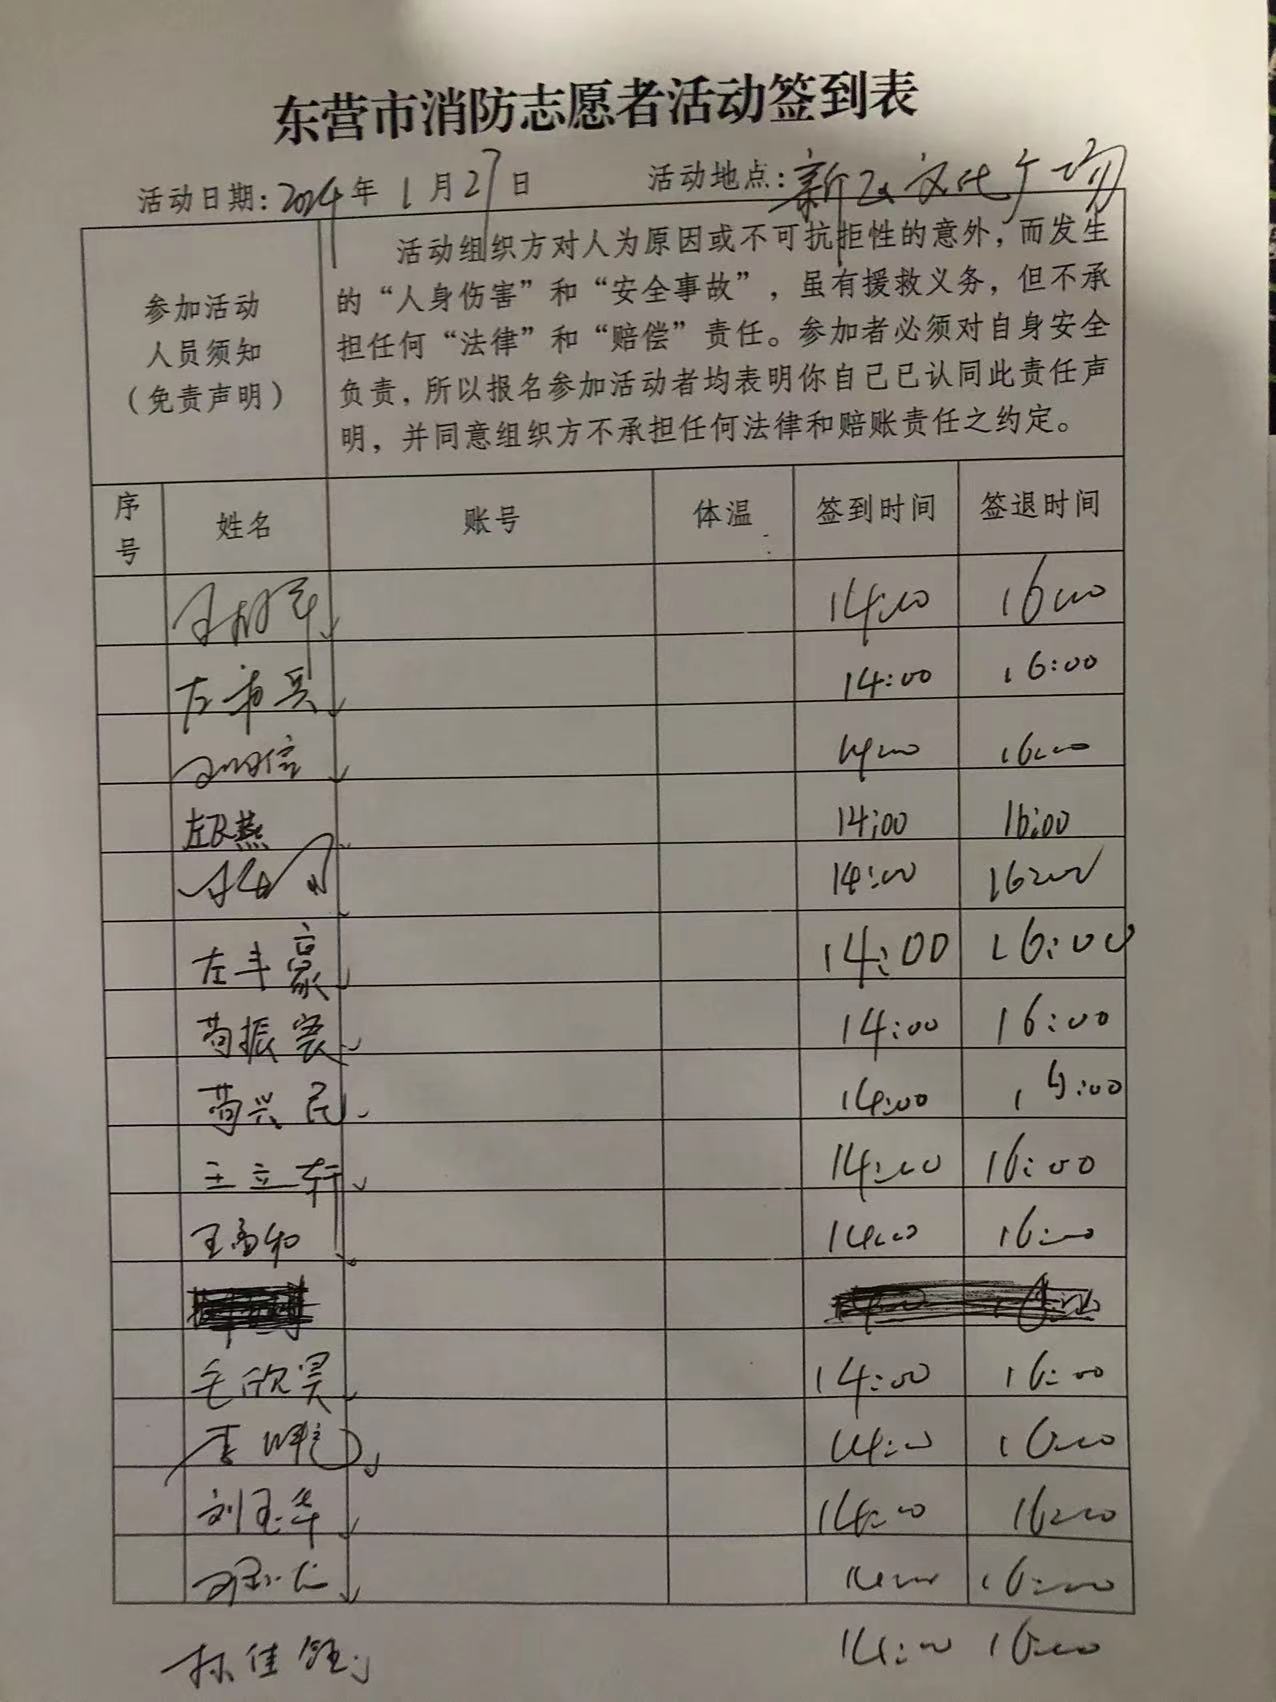 东营市消防志愿者活动签到表
活动日期:2024年1月27日 活动地点:新区文化广场
参加活动
人员须知
(免责声明)
活动组织方对人为原因或不可抗拒性的意外,而发生
的“人身伤害”和“安全事故”,虽有援救义务,但不承
担任何“法律”和“赔偿”责任。参加者必须对自身安全
负责,所以报名参加活动者均表明你自己已认同此责任声
明,并同意组织方不承担任何法律和赔账责任之约定。
序号 姓名 账号 体温 签到时间 签退时间
14:00 16:00
左 兵 14:00 16:00
14:00 16:00
左 燕 14:00 16:00
14:00 16:00
左丰豪 14:00 16:00
苟振寰 14:00 16:00
苟兴民 14:00 16:00
王立轩 14:00 16:00
王 和 14:00 16:00
毛欣昊 14:00 16:00
李 14:00 16:00
刘玉华 14:00 16:00
14:00 16:00
林佳 14:00 16:00